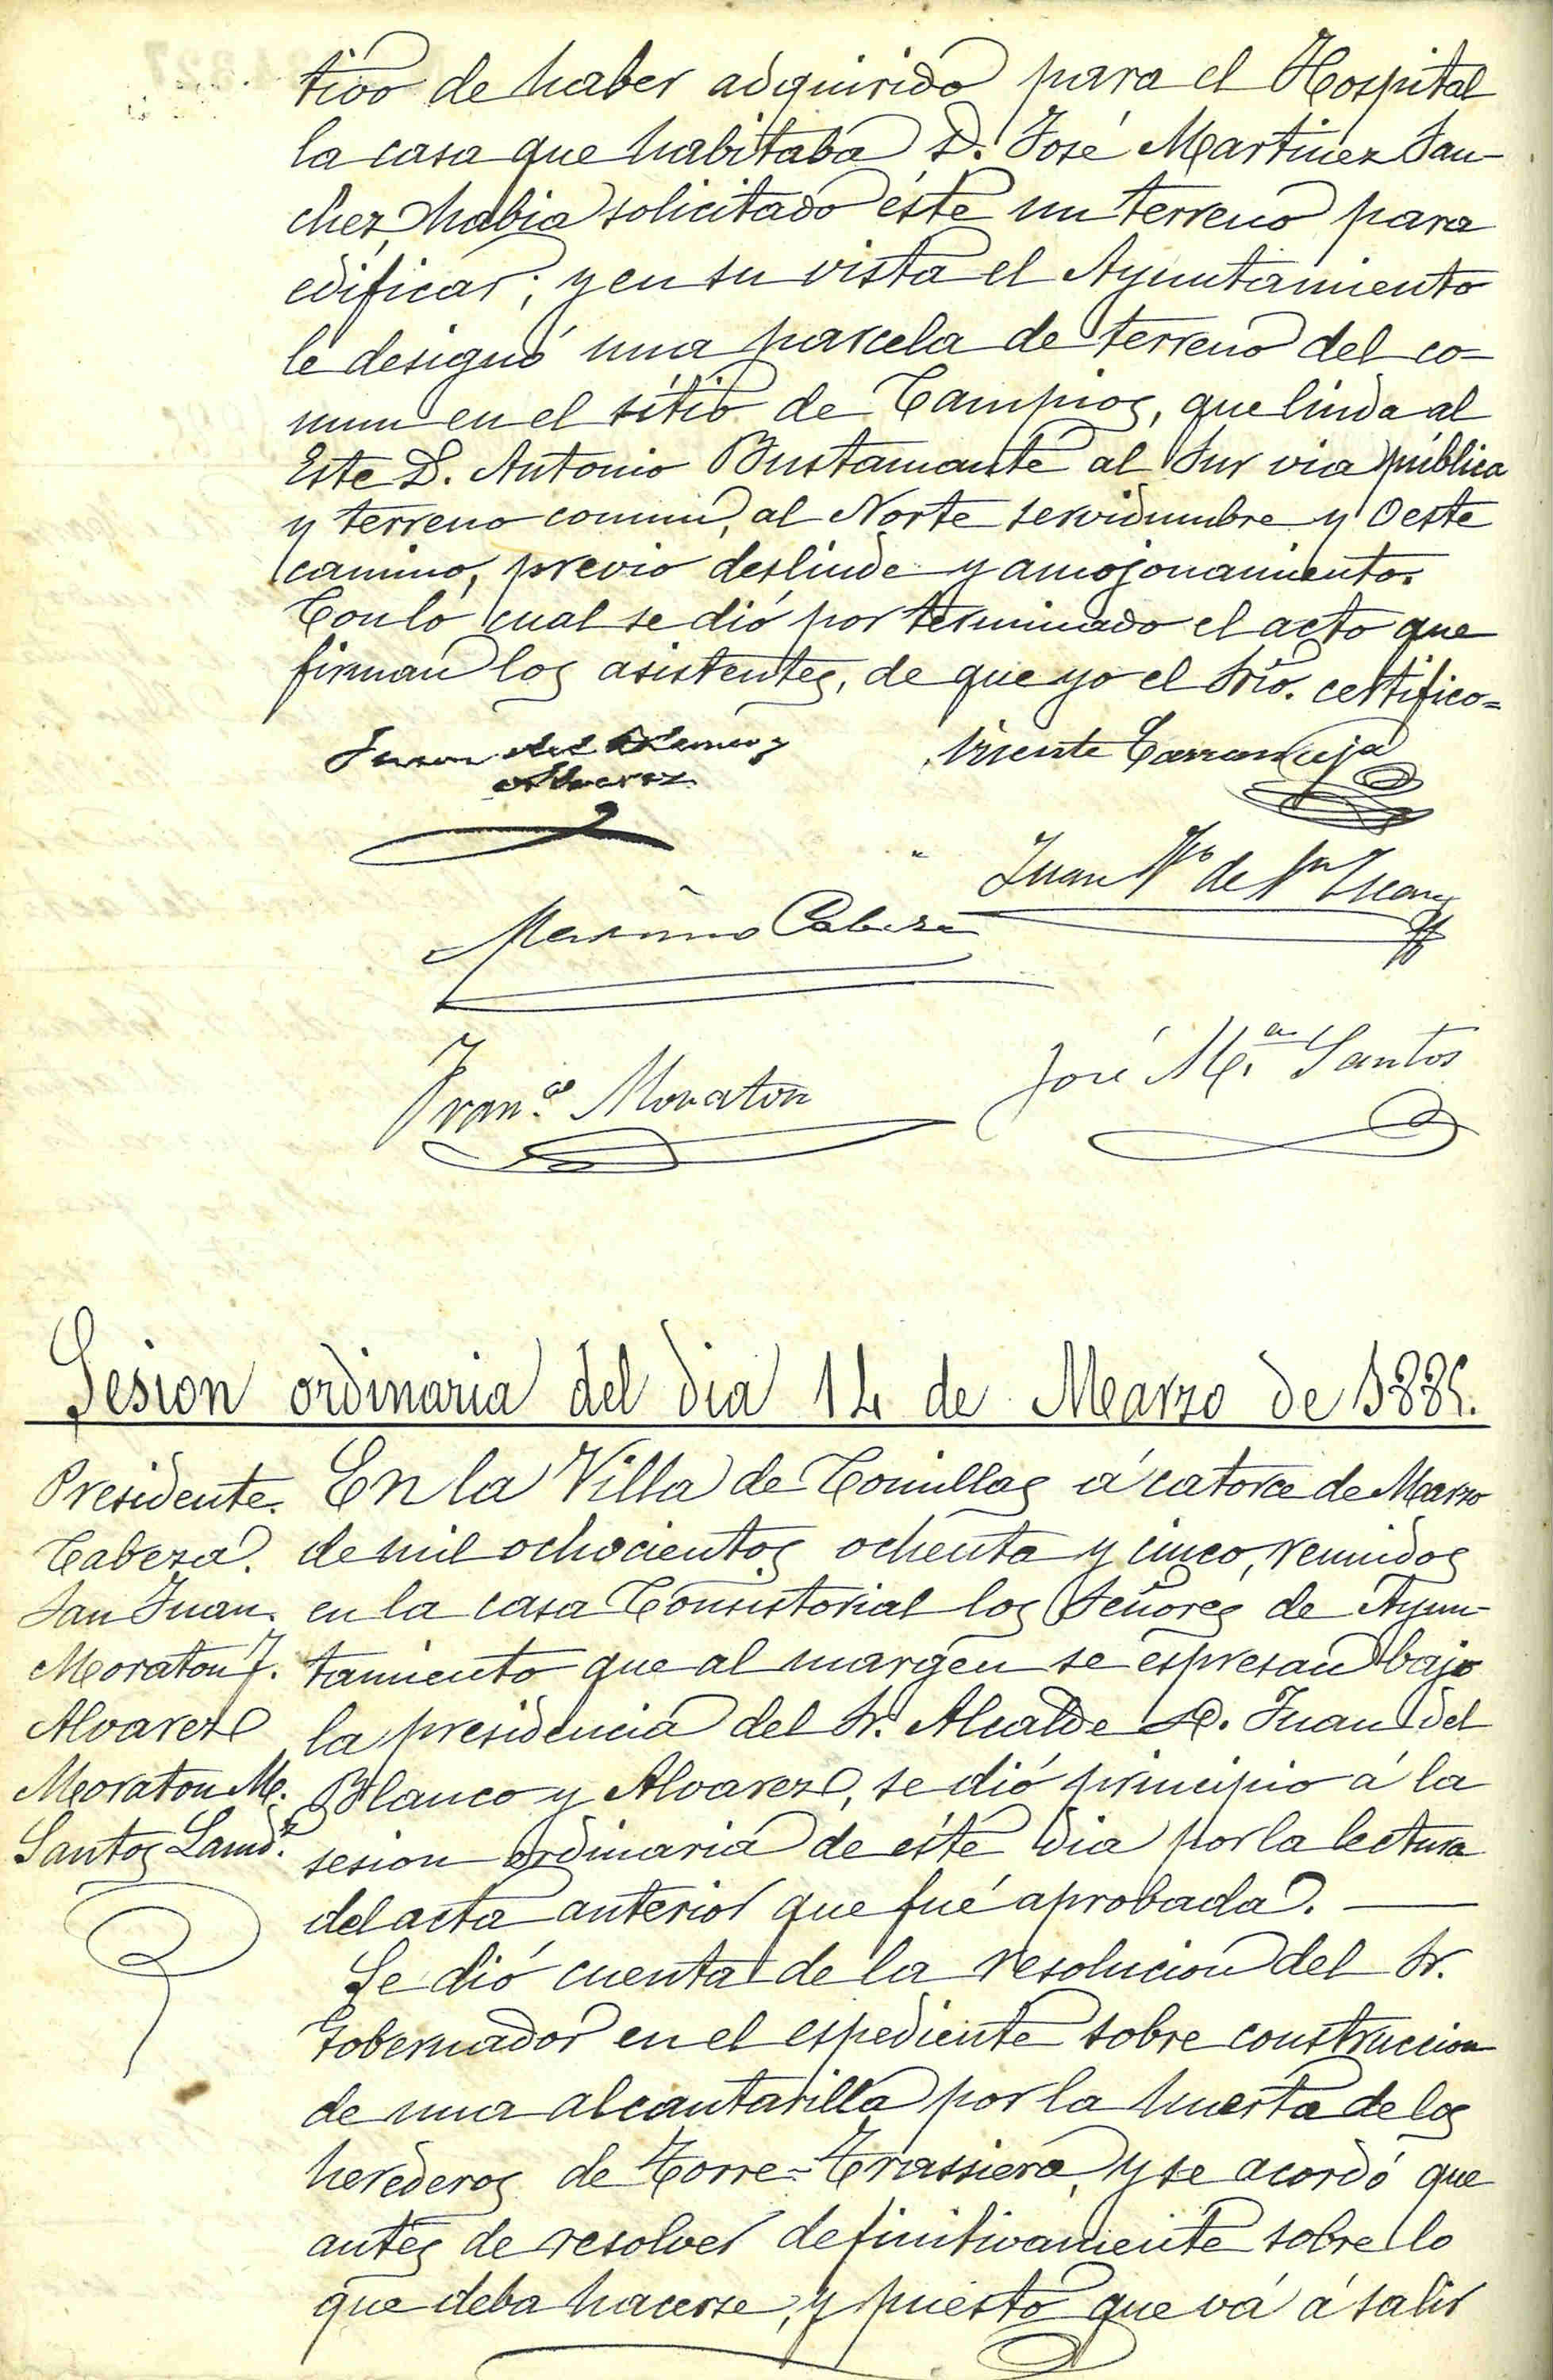 tivo de haber adquirido para el Hospital
la casa que habitaba D. José Martinez San-
chez, habia solicitado éste un terreno para
edificar; y en su vista el Ayuntamiento
le designó una parcela de terreno del co-
mun en el sitio de Campios, que linda al
Este D. Antonio Bustamante al Sur via pública
y terreno comun, al Norte servidumbre y Oeste
camino, previo deslinde y amojonamiento.
Con lo cual se dió por terminado el acto que
firman los asistentes, de que yo el Srio. certifico=
Juan del Blanco y
Alvarez
Vicente
Juan de
Maximo Cabeza
Fran.co Moraton
José M.a Santos
Sesion ordinaria del dia 14 de Marzo de 1885.
Presidente.
Cabeza.
San Juan.
Moraton F.
Alvarez
Moraton M.
Santos
En la Villa de Comillas á catorce de Marzo
de mil ochocientos ochenta y cinco, reunidos
en la casa Consistorial los Señores de Ayun-
tamiento que al margen se espresan bajo
la presidencia del Sr. Alcalde D. Juan del
Blanco y Alvarez, se dió principio á la
sesion ordinaria de éste dia por la lectura
del acta anterior que fué aprobada.
Se dió cuenta de la resolucion del Sr.
Gobernador en el espediente sobre construccion
de una alcantarilla por la huerta de los
herederos de Torre=Trassiera, y se acordó que
antes de resolver definitivamente sobre lo
que deba hacerse, y puesto que vá á salir